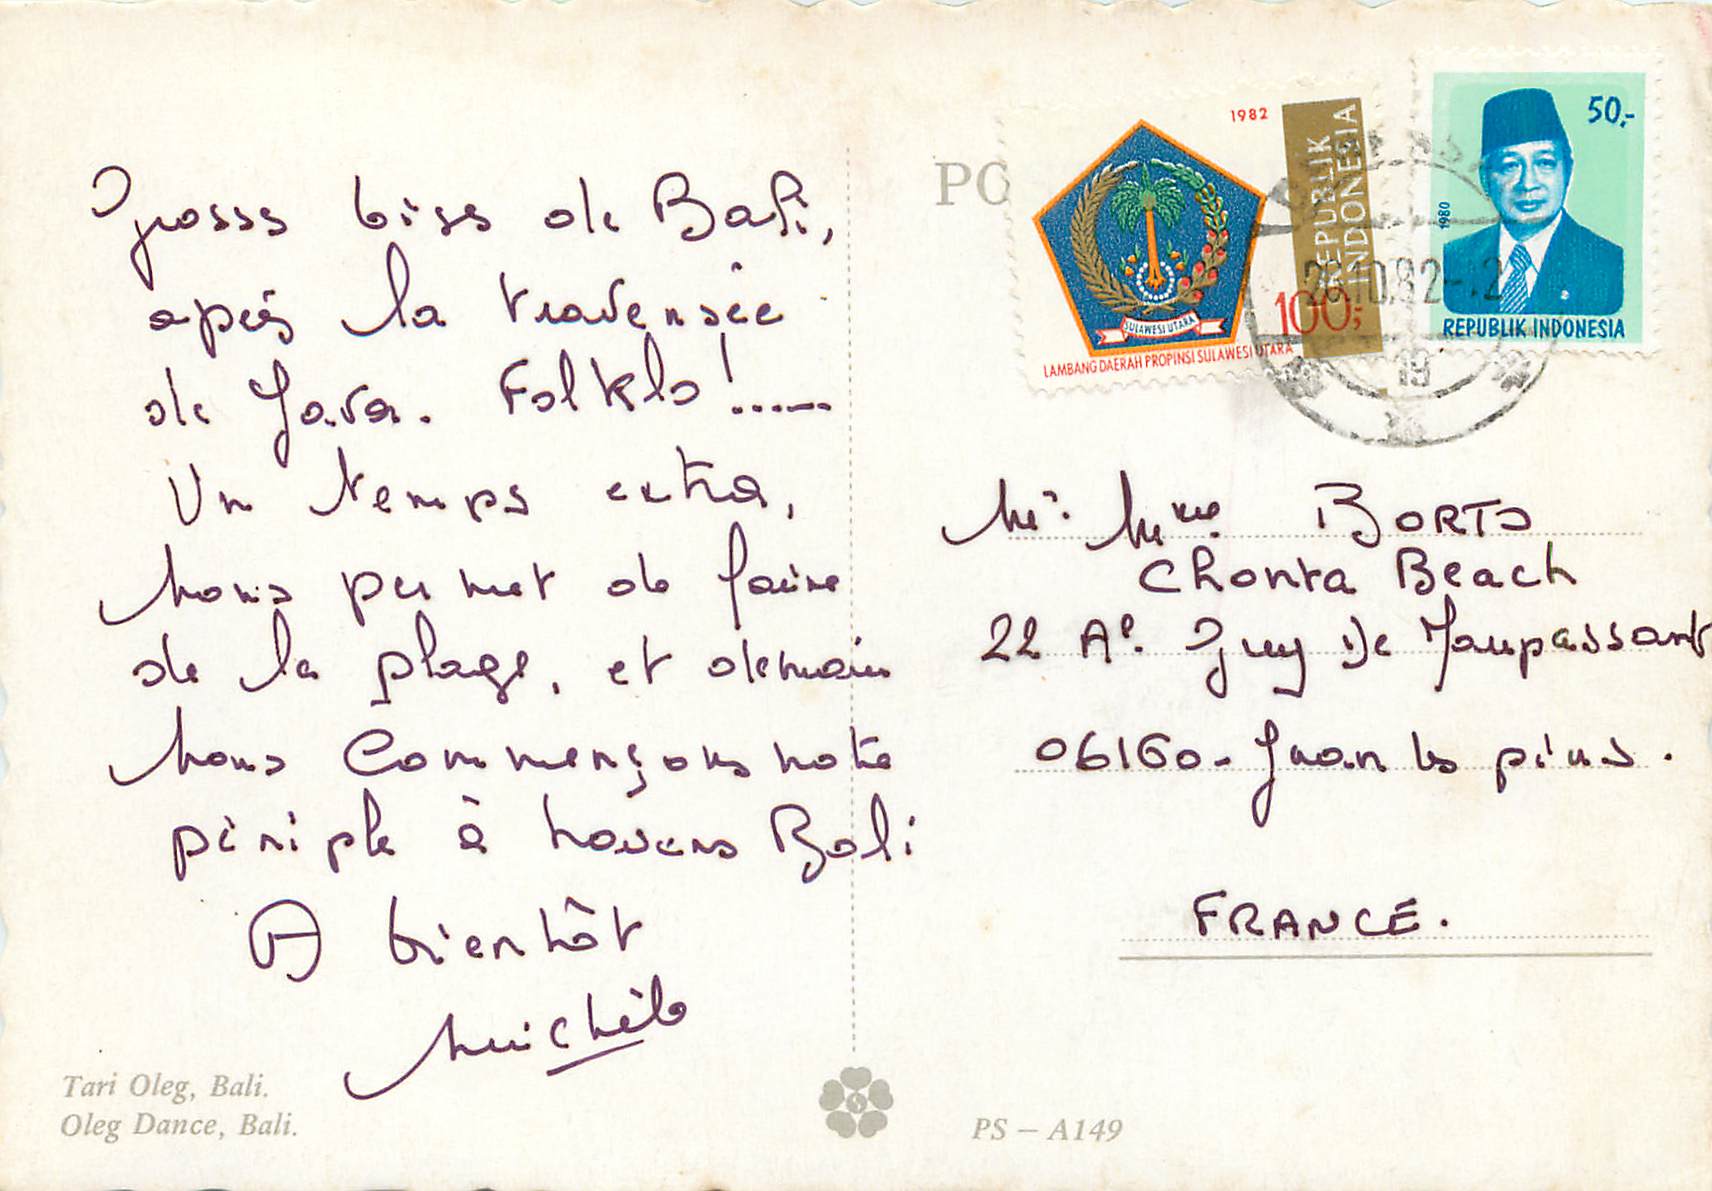 Grosses bises de Bali,
après la traversée
de Java. Folklo !.....
Un temps extra,
nous permet de faire
de la plage, et demain
nous commençons notre
périple à travers Bali
A bientôt
Michèle
Tari Oleg, Bali.
Oleg Dance, Bali.
PO
1982
REPUBLIK
INDONESIA
100,-
SULAWESI UTARA
LAMBANG DAERAH PROPINSI SULAWESI UTARA
50,-
1980
REPUBLIK INDONESIA
19
Mr. Mme BORTO
Chonta Beach
22 Ae. Guy De Maupassant
06160 - Juan les pins.
FRANCE.
PS – A149